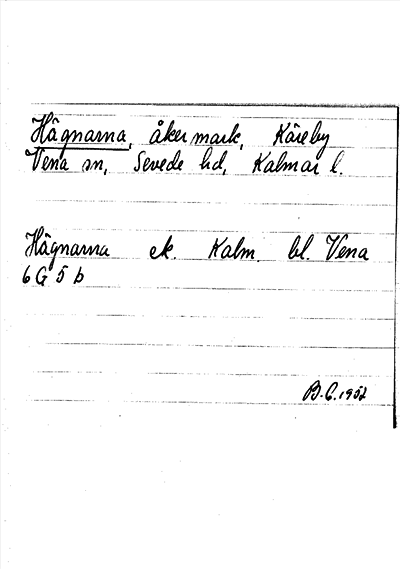 Hägnarna, åkermark, Käreby
Vena sn, Sevede hd, Kalmar l.
Hägnarna ek. Kalm. bl. Vena
6 G 5 b
B.C. 1952